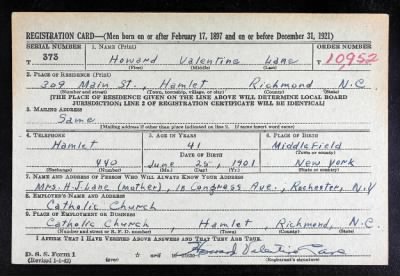 REGISTRATION CARD—(Men born on or after February 17, 1897 and on or before December 31, 1921)
SERIAL NUMBER 1. NAME (Print) ORDER NUMBER
T 373 Howard Valentine Lane T 10,952
(First) (Middle) (Last)
2. PLACE OF RESIDENCE (Print)
309 Main St., Hamlet Richmond N.C.
(Number and street) (Town, township, village, or city) (County) (State)
[THE PLACE OF RESIDENCE GIVEN ON THE LINE ABOVE WILL DETERMINE LOCAL BOARD
JURISDICTION; LINE 2 OF REGISTRATION CERTIFICATE WILL BE IDENTICAL]
3. MAILING ADDRESS
Same
[Mailing address if other than place indicated on line 2. If same insert word same]
4. TELEPHONE 5. AGE IN YEARS 6. PLACE OF BIRTH
Hamlet 41 Middlefield
DATE OF BIRTH (Town or county)
440 June 25, 1901 New York
(Exchange) (Number) (Mo.) (Day) (Yr.) (State or country)
7. NAME AND ADDRESS OF PERSON WHO WILL ALWAYS KNOW YOUR ADDRESS
Mrs. H.J. Lane (mother), 10 Congress Ave., Rochester, N.Y
8. EMPLOYER'S NAME AND ADDRESS
Catholic Church
9. PLACE OF EMPLOYMENT OR BUSINESS
Catholic Church, Hamlet, Richmond, N.C.
(Number and street or R. F. D. number) (Town) (County) (State)
I AFFIRM THAT I HAVE VERIFIED ABOVE ANSWERS AND THAT THEY ARE TRUE.
D. S. S. Form 1
(Revised 1-1-42) (over) Howard Valentine Lane